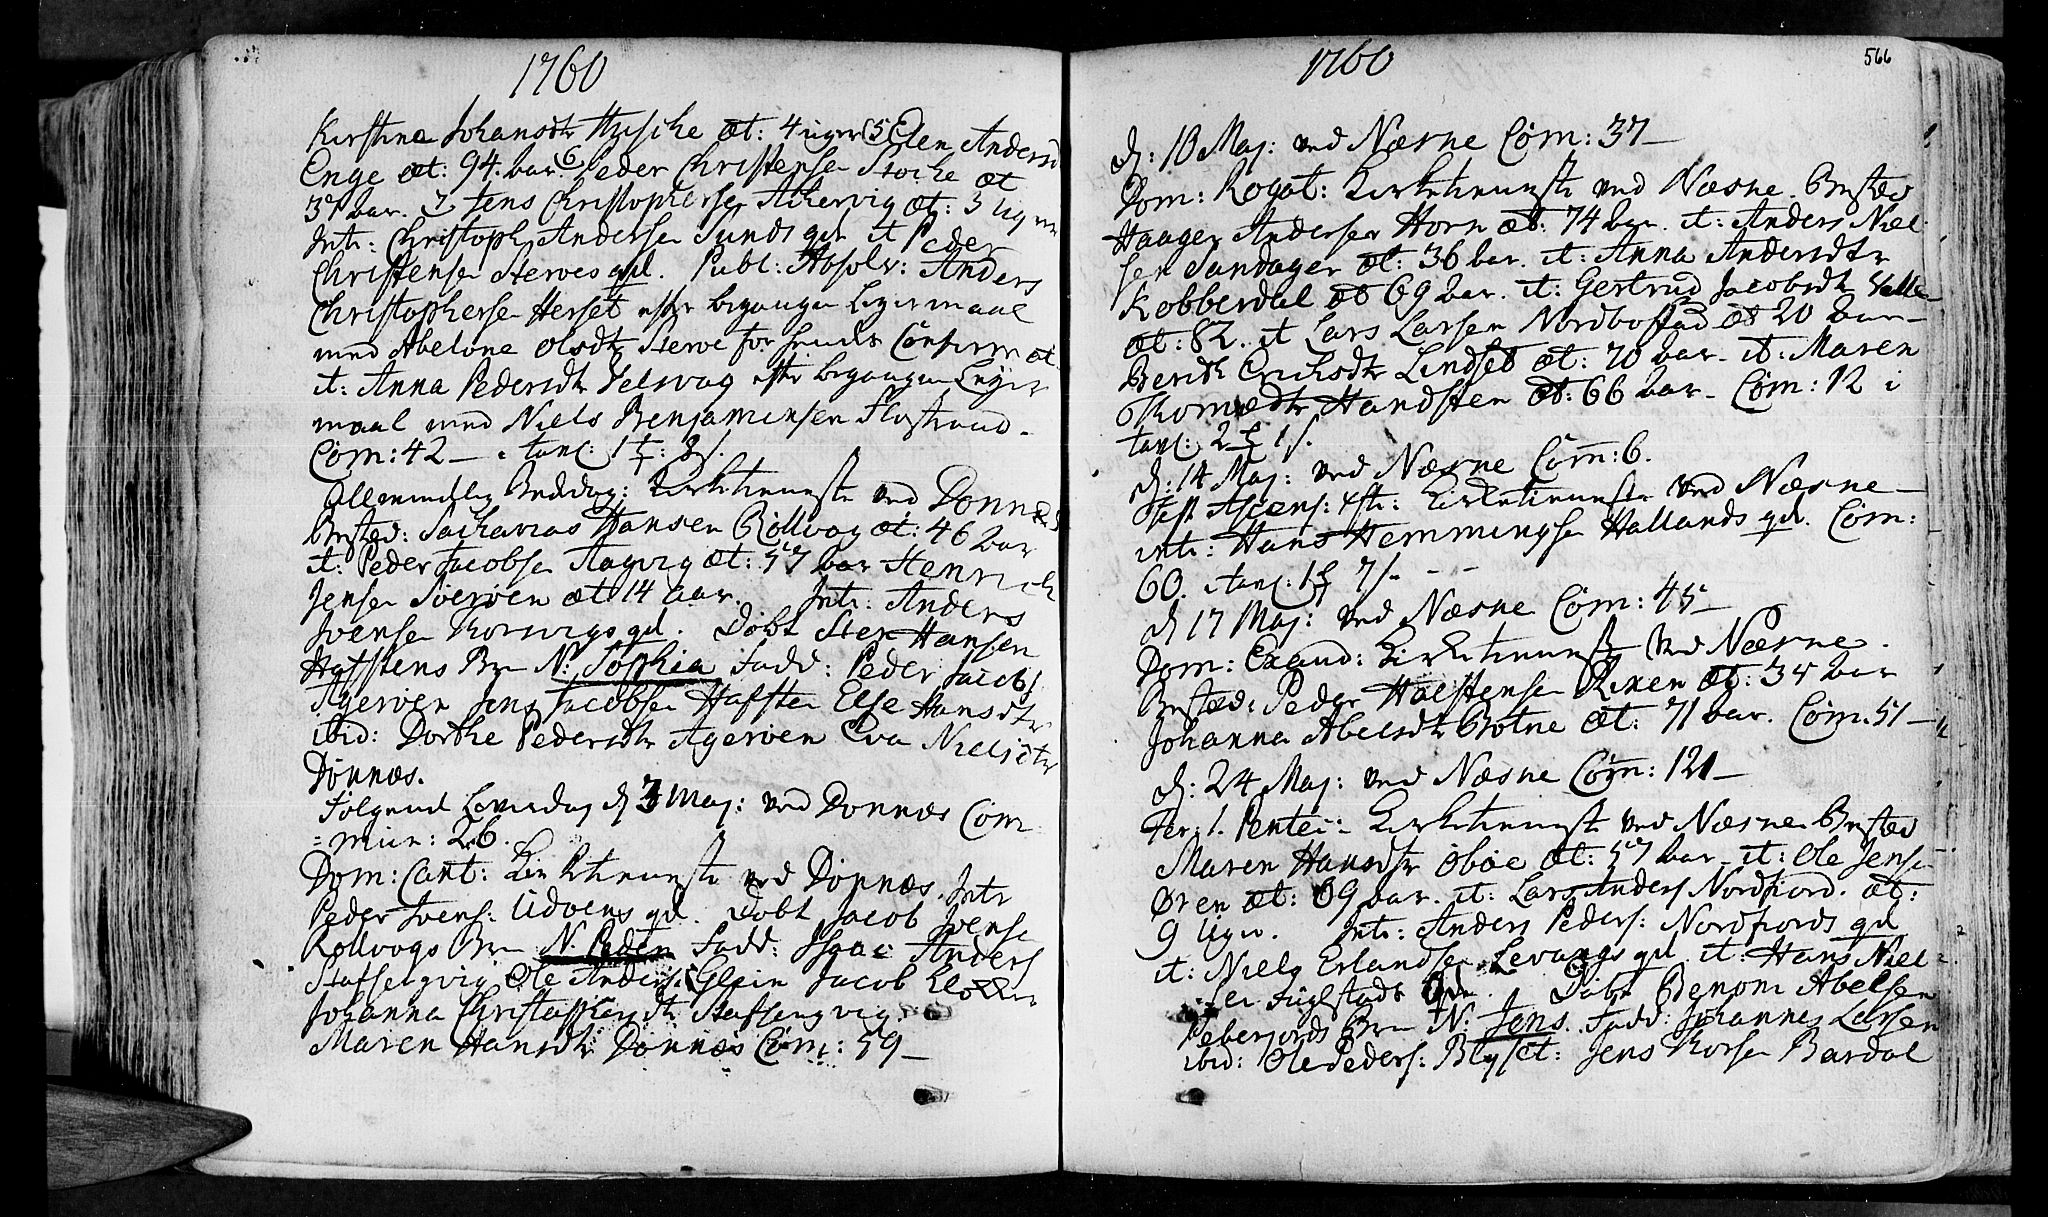 1760
Kirstina Johansdtr Husche æt: 4 uger (5 Elen Andersd
Enge æt: 94. bar (6 Peder Christensen Stoche æt
37 bar. 7 Jens Christophersen Achervig æt: 3 Uger
Intr: Christoph Andersen Sunds qd it Peder
Christensen Sterves qd. Publ: Absolv: Anders
Christophersen Herset efter begangen Leyermaal
med Abelone Olsdtr Sterve for hendes Confirmat
it: Anna Pedersdtr Selsvog efter begangen Leyer
maal med Niels Benjaminsen Flostrand.
Com: 42 –
Allmindelig Beddag: Kirketieneste ved Dønnæs
Bested: Sacharias Hansen Røllvog æt: 46 bar
it: Peder Jacobsen Aagvig æt: 57 bar Henrich
Jensen Sørøen æt 14 aar. Intr: Anders
Ivensen Korsvigs qd. Døbt Sten Hansen
Hafstens Brn N: Sophia Fadd: Peder Jacobs
Agerøen Jens Jacobsen Hafsten Else Hansdtr
ibid: Dorthe Pedersdtr Agerøen Eva Nielsdtr
Dønnæs.
Følgend Løverdag d 3 Maj: ved Dønnæs Com
= mun: 26.
Dom: Cant: Kirketieneste ved Dønnæs. Intr
Peder Ivens: Udøens qd. Døbt Jacob Ivensen
Rollvogs Brn N. Peder Fadd: Isaac Anders
Staffsengvig Ole Anders: Glein Jacob Klocker
Johanna Christophersdtr Staffsengvig
Maren Hansdtr Dønnæs Com: 59 –
1760
566
d: 10 Maj: ved Næsne Com: 37 –
Dom: Rogat: Kirketieneste ved Næsne. Bested
Haagen Andersen Horn æt: 74 bar. it: Anders Niel-
sen Sandager æt: 36 bar. it: Anna Andersdtr
Kobberdal æt 69 bar. it: Gertrud Jacobsdtr Valle
æt: 82. it Lars Larsen Nordbostad æt 20 bar –
Berith Erichsdtr Lindset æt: 70 bar. it: Maren
Thomædtr Handsten æt: 66 bar. Com: 12 i
d: 14 Maj: ved Næsne Com: 6.
Fest Ascens: Kirketieneste ved Næsne –
intr: Hans Hemmingsen Hallands qd. Com:
60.
d 17 Maj: ved Næsne Com: 45 –
Dom: Exaud: Kirketieneste ved Næsne.
Bested: Peder Halstensen Rinen æt: 34 bar
Johanna Abelsdtr Botne æt: 71 bar. Com: 51 –
d: 24 Maj: ved Næsne Com: 121 –
Fer: 1. Pentec: Kirketieneste ved Næsne Bested
Maren Hansdtr Øbøe æt: 57 bar it: Ole Jensen
Øren æt: 69 bar. it: Lars Anders Nordfiord. æt:
9 Uger. Intr: Anders Peders: Nordfiords qd
it: Niels Erlandsen Levangs qd. it: Hans Niel-
sen Fuglstads Qde. Døbt Benoni Abelsen
Peberfiords Brn N: Jens. Fadd: Johannes Larsen
ibid: Ole Peders: Blyset: Jens Korsen Bardal